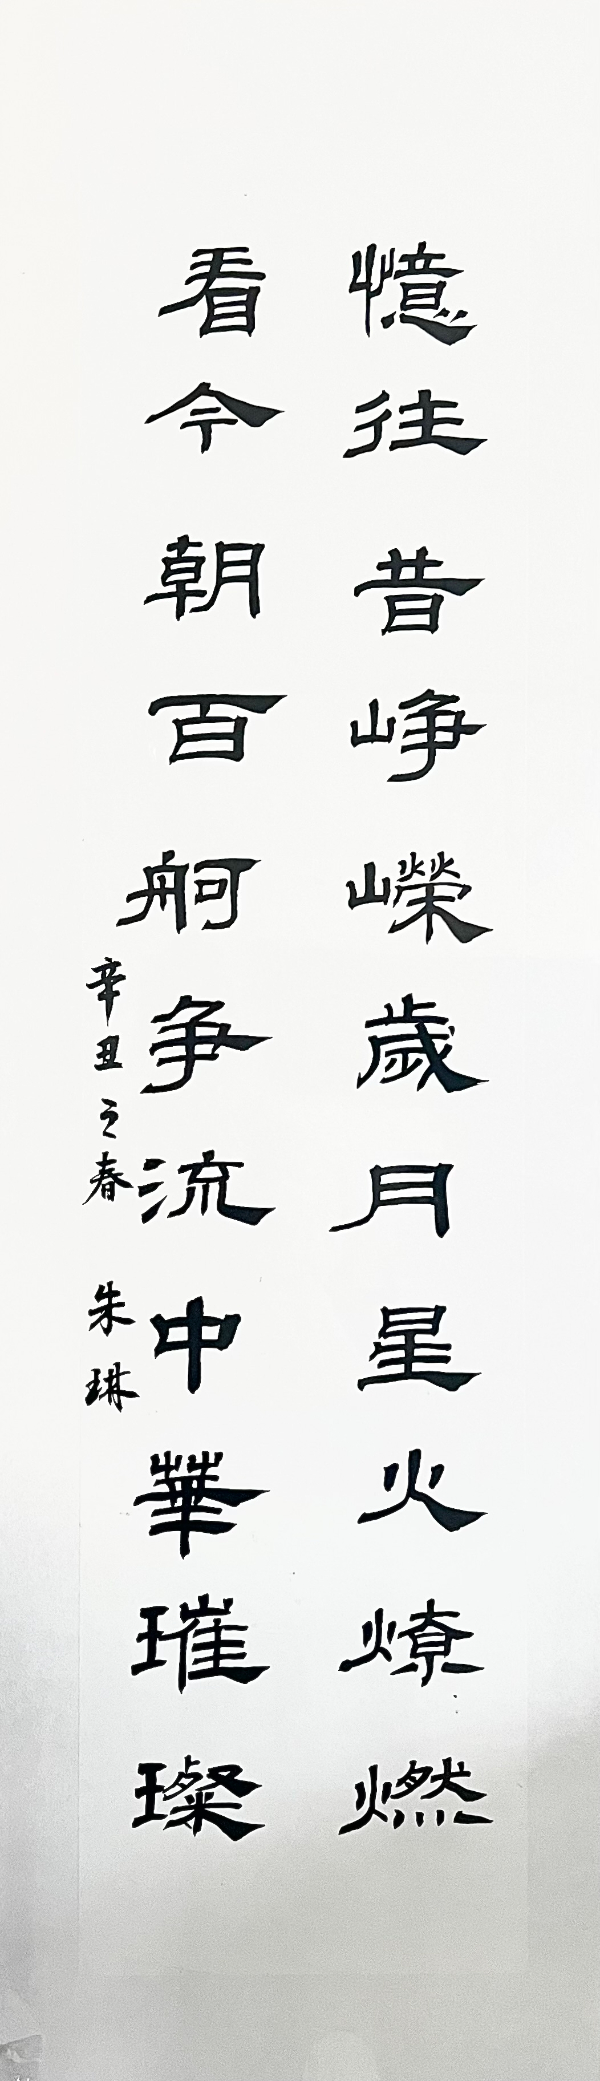 憶往昔峥嶸歲月星火燎燃
看今朝百舸争流中華璀璨
辛丑之春 朱琳